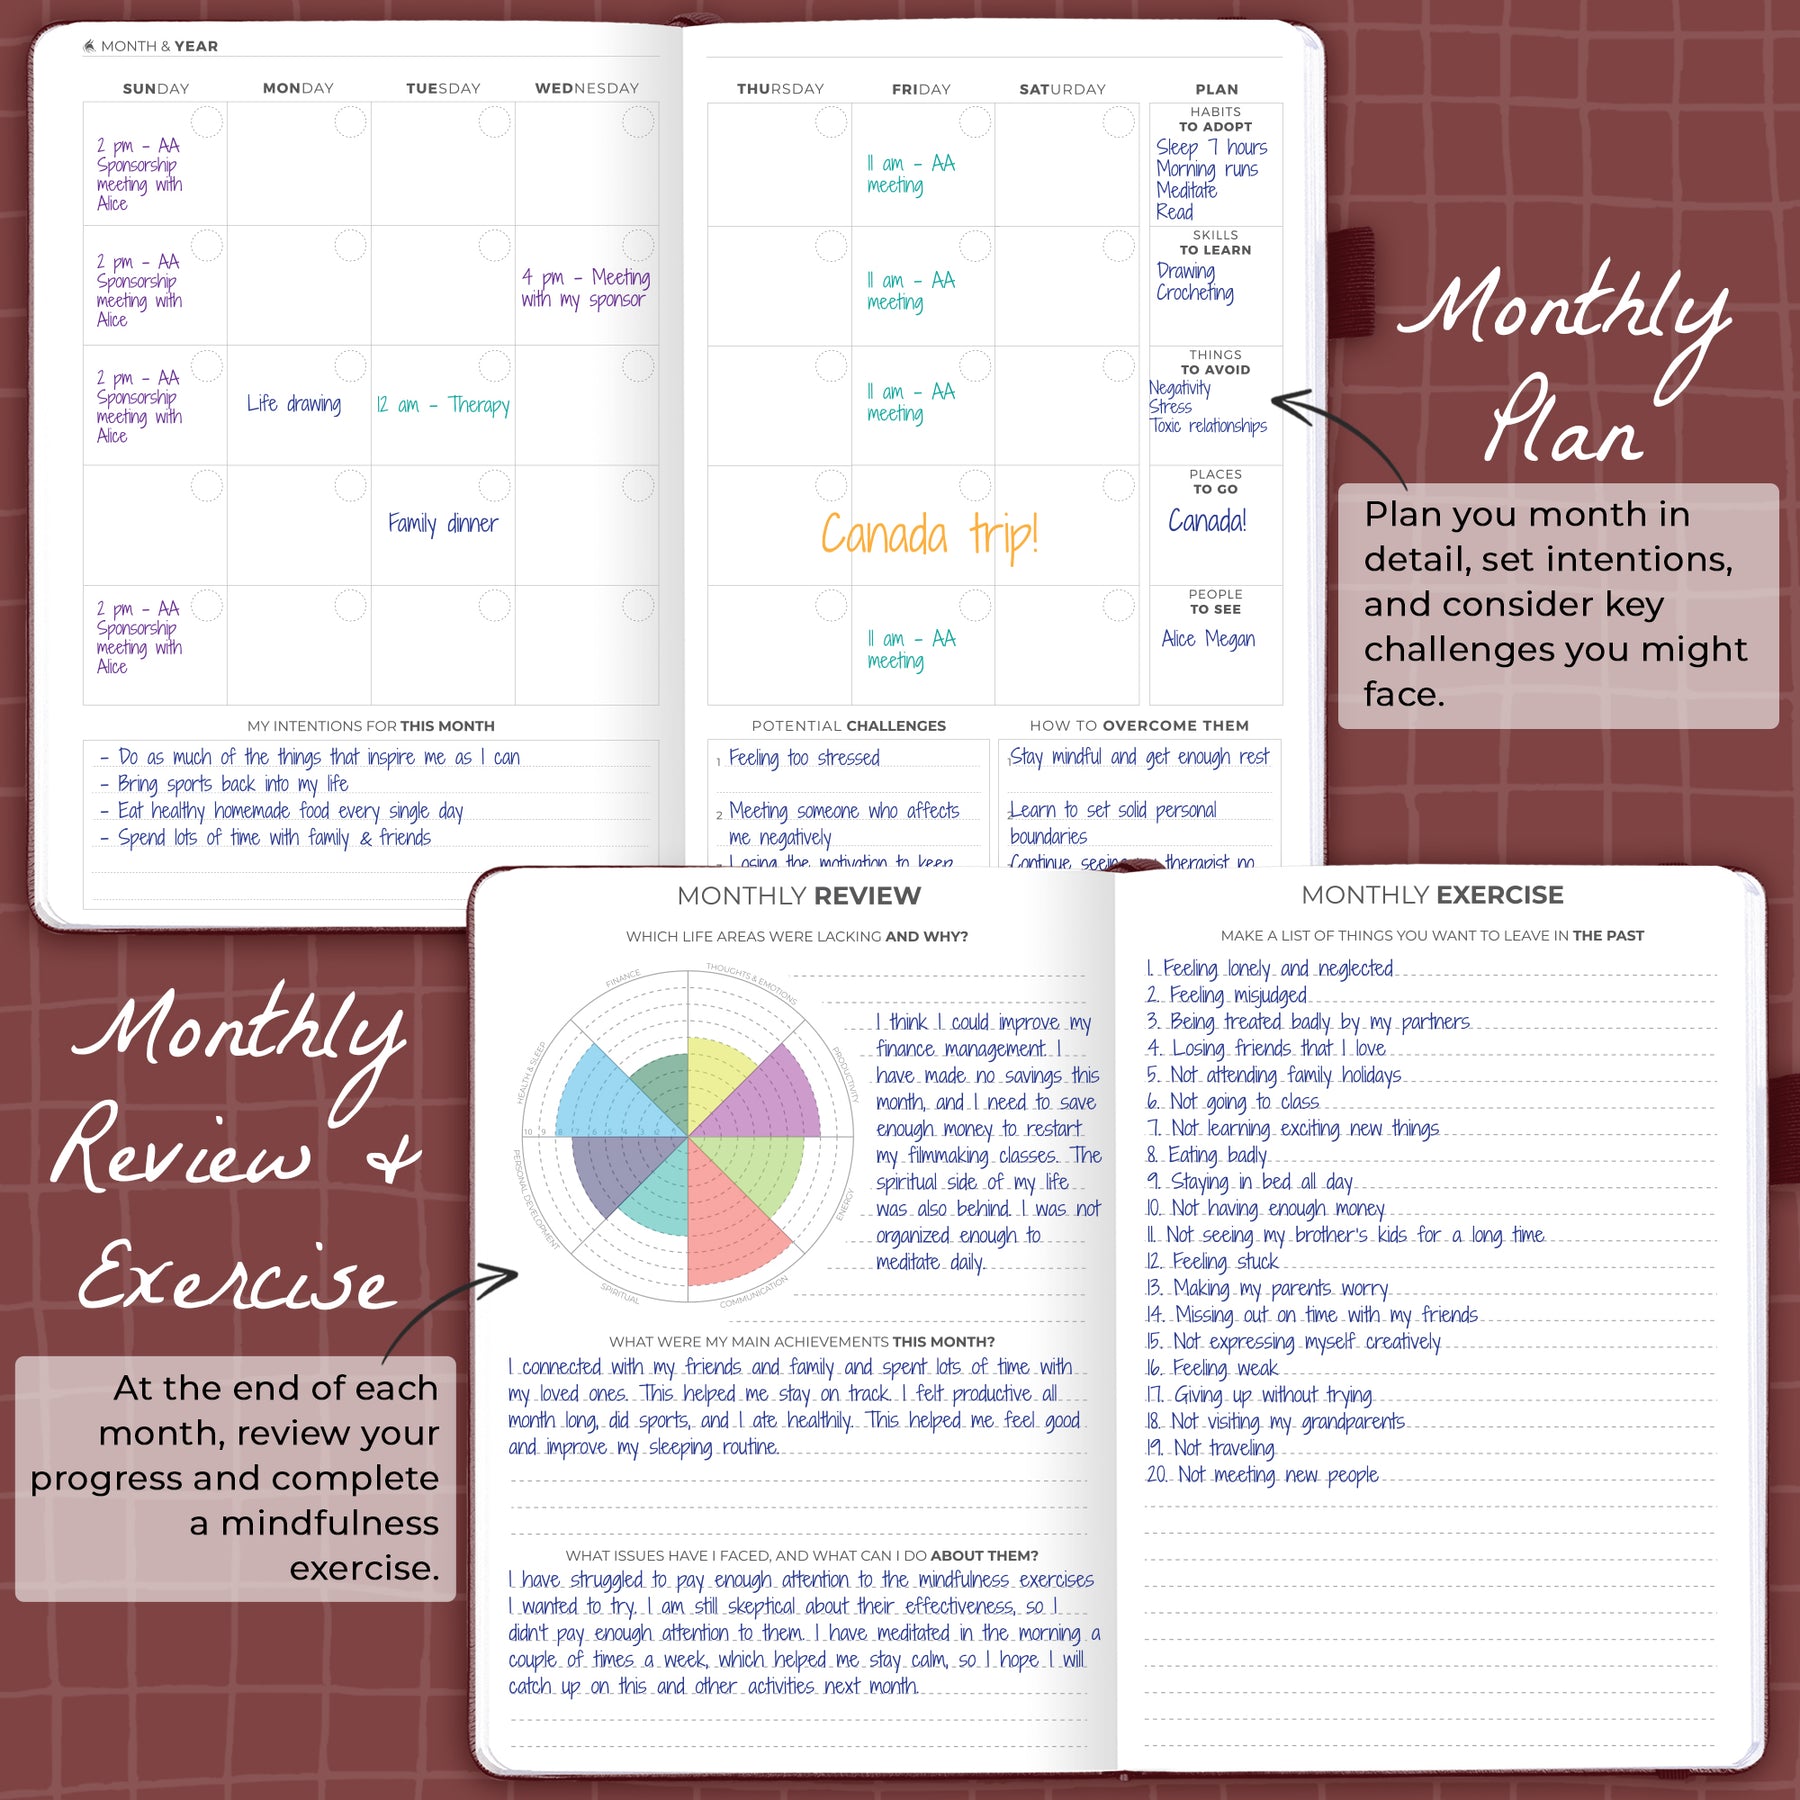 MONTH & YEAR
SUNDAY MONDAY TUESDAY WEDNESDAY THURSDAY FRIDAY SATURDAY PLAN
2 pm - AA
Sponsorship
meeting with
Alice
11 am - AA
meeting
HABITS
TO ADOPT
Sleep 7 hours
Morning runs
Meditate
Read
2 pm - AA
Sponsorship
meeting with
Alice
4 pm - Meeting
with my sponsor
11 am - AA
meeting
SKILLS
TO LEARN
Drawing
Crocheting
2 pm - AA
Sponsorship
meeting with
Alice
Life drawing
12 am - Therapy
11 am - AA
meeting
THINGS
TO AVOID
Negativity
Stress
Toxic relationships
Family dinner
Canada trip!
PLACES
TO GO
Canada!
2 pm - AA
Sponsorship
meeting with
Alice
11 am - AA
meeting
PEOPLE
TO SEE
Alice Megan
MY INTENTIONS FOR THIS MONTH
- Do as much of the things that inspire me as I can
- Bring sports back into my life
- Eat healthy homemade food every single day
- Spend lots of time with family & friends
POTENTIAL CHALLENGES
1 Feeling too stressed
2 Meeting someone who affects
me negatively
Losing the motivation to keep
HOW TO OVERCOME THEM
1 Stay mindful and get enough rest
2 Learn to set solid personal
boundaries
Continue seeing therapist no
Monthly
Plan
Plan you month in
detail, set intentions,
and consider key
challenges you might
face.
Monthly
Review &
Exercise
At the end of each
month, review your
progress and complete
a mindfulness
exercise.
MONTHLY REVIEW
WHICH LIFE AREAS WERE LACKING AND WHY?
FINANCE
THOUGHTS & EMOTIONS
PRODUCTIVITY
ENERGY
COMMUNICATION
SPIRITUAL
PERSONAL DEVELOPMENT
HEALTH & SLEEP
10 9 8 7 6 5 4 3 2 1
I think I could improve my
finance management. I
have made no savings this
month, and I need to save
enough money to restart
my filmmaking classes. The
spiritual side of my life
was also behind. I was not
organized enough to
meditate daily.
WHAT WERE MY MAIN ACHIEVEMENTS THIS MONTH?
I connected with my friends and family and spent lots of time with
my loved ones. This helped me stay on track. I felt productive all
month long, did sports, and I ate healthily. This helped me feel good
and improve my sleeping routine.
WHAT ISSUES HAVE I FACED, AND WHAT CAN I DO ABOUT THEM?
I have struggled to pay enough attention to the mindfulness exercises
I wanted to try. I am still skeptical about their effectiveness, so I
didn't pay enough attention to them. I have meditated in the morning a
couple of times a week, which helped me stay calm, so I hope I will
catch up on this and other activities next month.
MONTHLY EXERCISE
MAKE A LIST OF THINGS YOU WANT TO LEAVE IN THE PAST
1. Feeling lonely and neglected
2. Feeling misjudged
3. Being treated badly by my partners
4. Losing friends that I love
5. Not attending family holidays
6. Not going to class
7. Not learning exciting new things
8. Eating badly
9. Staying in bed all day
10. Not having enough money
11. Not seeing my brother's kids for a long time
12. Feeling stuck
13. Making my parents worry
14. Missing out on time with my friends
15. Not expressing myself creatively
16. Feeling weak
17. Giving up without trying
18. Not visiting my grandparents
19. Not traveling
20. Not meeting new people